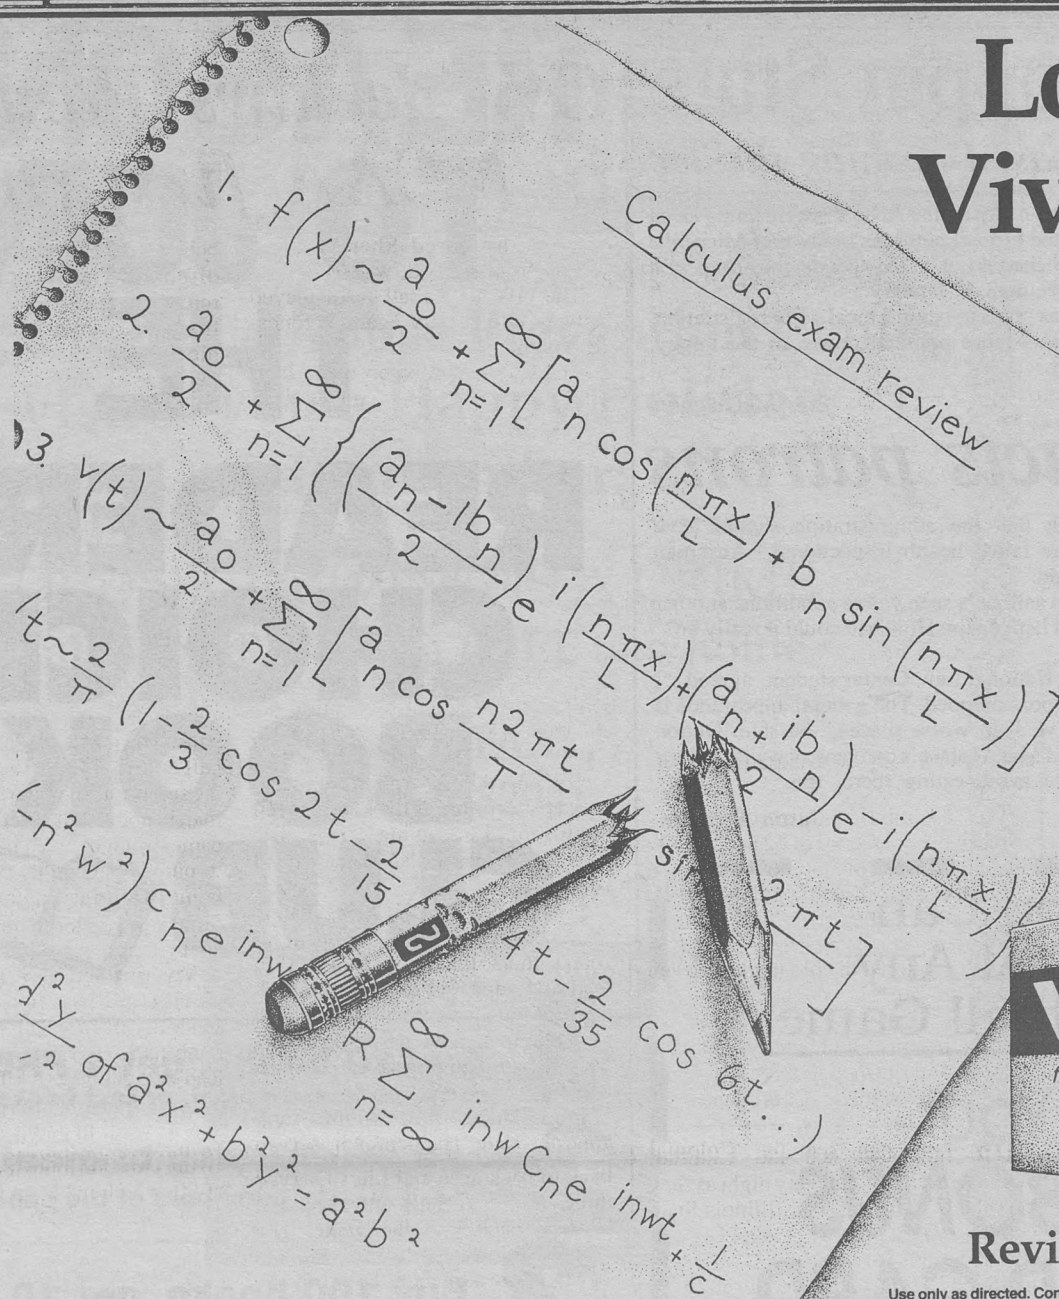 Lo
Viv
Calculus exam review
1. f(x) ~ a0/2 + ∞Σn=1 [an cos(nπx/L) + bn sin(nπx/L)]
2. a0/2 + ∞Σn=1 {((an-ibn)/2) e i(nπx/L) + ((an+ibn)/2) e -i(nπx/L)
3. v(t) ~ a0/2 + ∞Σn=1 [an cos n2πt/T
sin 2πt]
t ~ 2/π (1 - 2/3 cos 2t - 2/15
4t - 2/35 cos 6t...)
(n² w²) cn e inw
R ∞Σn=∞ inw Cn e inwt + 1/c
of a²x² + b²y² = a²b²
2
Revi
Use only as directed.